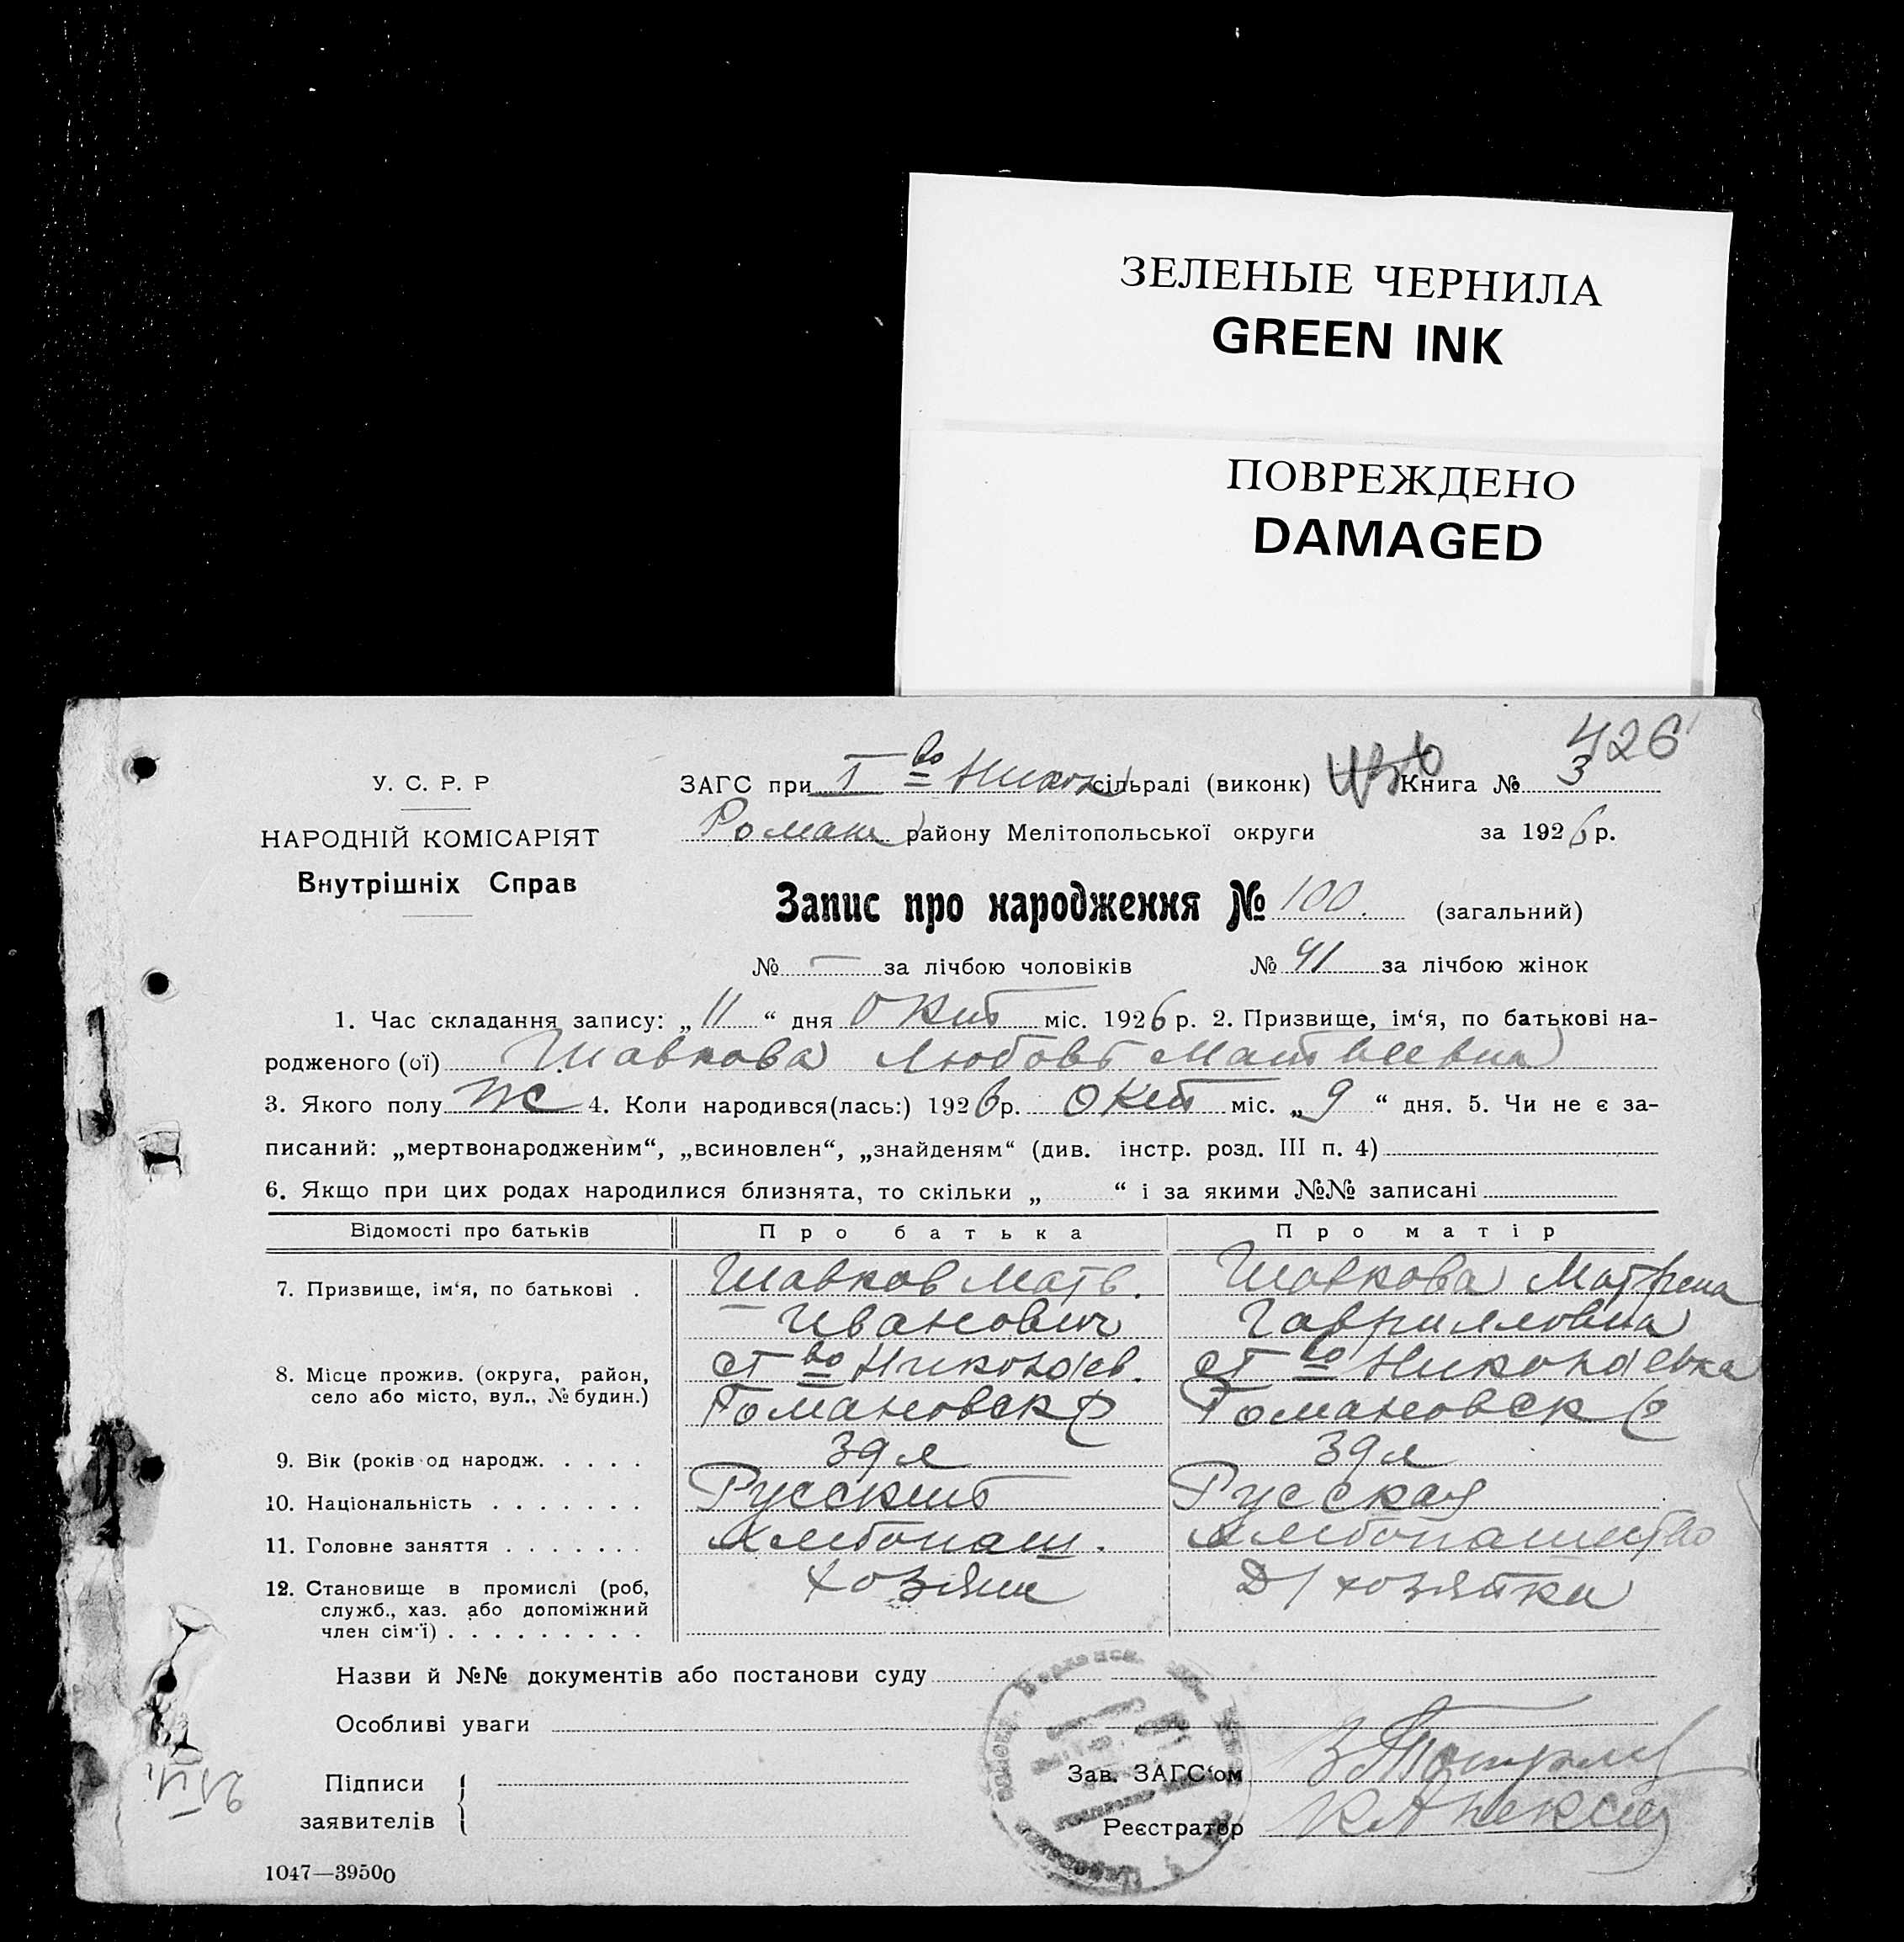 ЗЕЛЕНЫЕ ЧЕРНИЛА
GREEN INK
ПОВРЕЖДЕНО
DAMAGED
426
У. С. Р. Р
НАРОДНІЙ КОМІСАРІЯТ
Внутрішніх Справ
ЗАГС при I во Никол сільраді (виконк) Книга № 3
Роман району Мелітопольської округи за 1926 р.
Запис про народження № 100. (загальний)
№ — за лічбою чоловіків № 41 за лічбою жінок
1. Час складання запису: „11“ дня Окт міс. 1926 р. 2. Призвище, ім‘я, по батькові на-
родженого (ої) Шавкова Любовь Матвеевна
3. Якого полу ж 4. Коли народився(лась:) 1926 р. Окт міс. „9“ дня. 5. Чи не є за-
писаний: „мертвонародженим“, „всиновлен“, „знайденям“ (див. інстр. розд. III п. 4)
6. Якщо при цих родах народилися близнята, то скільки „ “ і за якими №№ записані
Відомості про батьків Про батька Про матір
7. Призвище, ім‘я, по батькові . Шавков Матв. Шавкова Матрена
Иванович Гаврилловна
8. Місце прожив. (округа, район, село або місто, вул., № будин.) с I во Николаев. с I во Николаевка
Романовск р Романовск р
9. Вік (років од народж. . . . . 39 л 39 л
10. Національність . . . . . . . Русский Русская
11. Головне заняття . . . . . . . Хлебопаш. Хлебопашество
12. Становище в промислі (роб, служб., хаз. або допоміжний член сім‘ї) . . . . . . . . . Хозяин Д/хозяйка
Назви й №№ документів або постанови суду
Особливі уваги
Підписи
заявителів
Зав. ЗАГС‘ом
Реєстратор
1047—39500